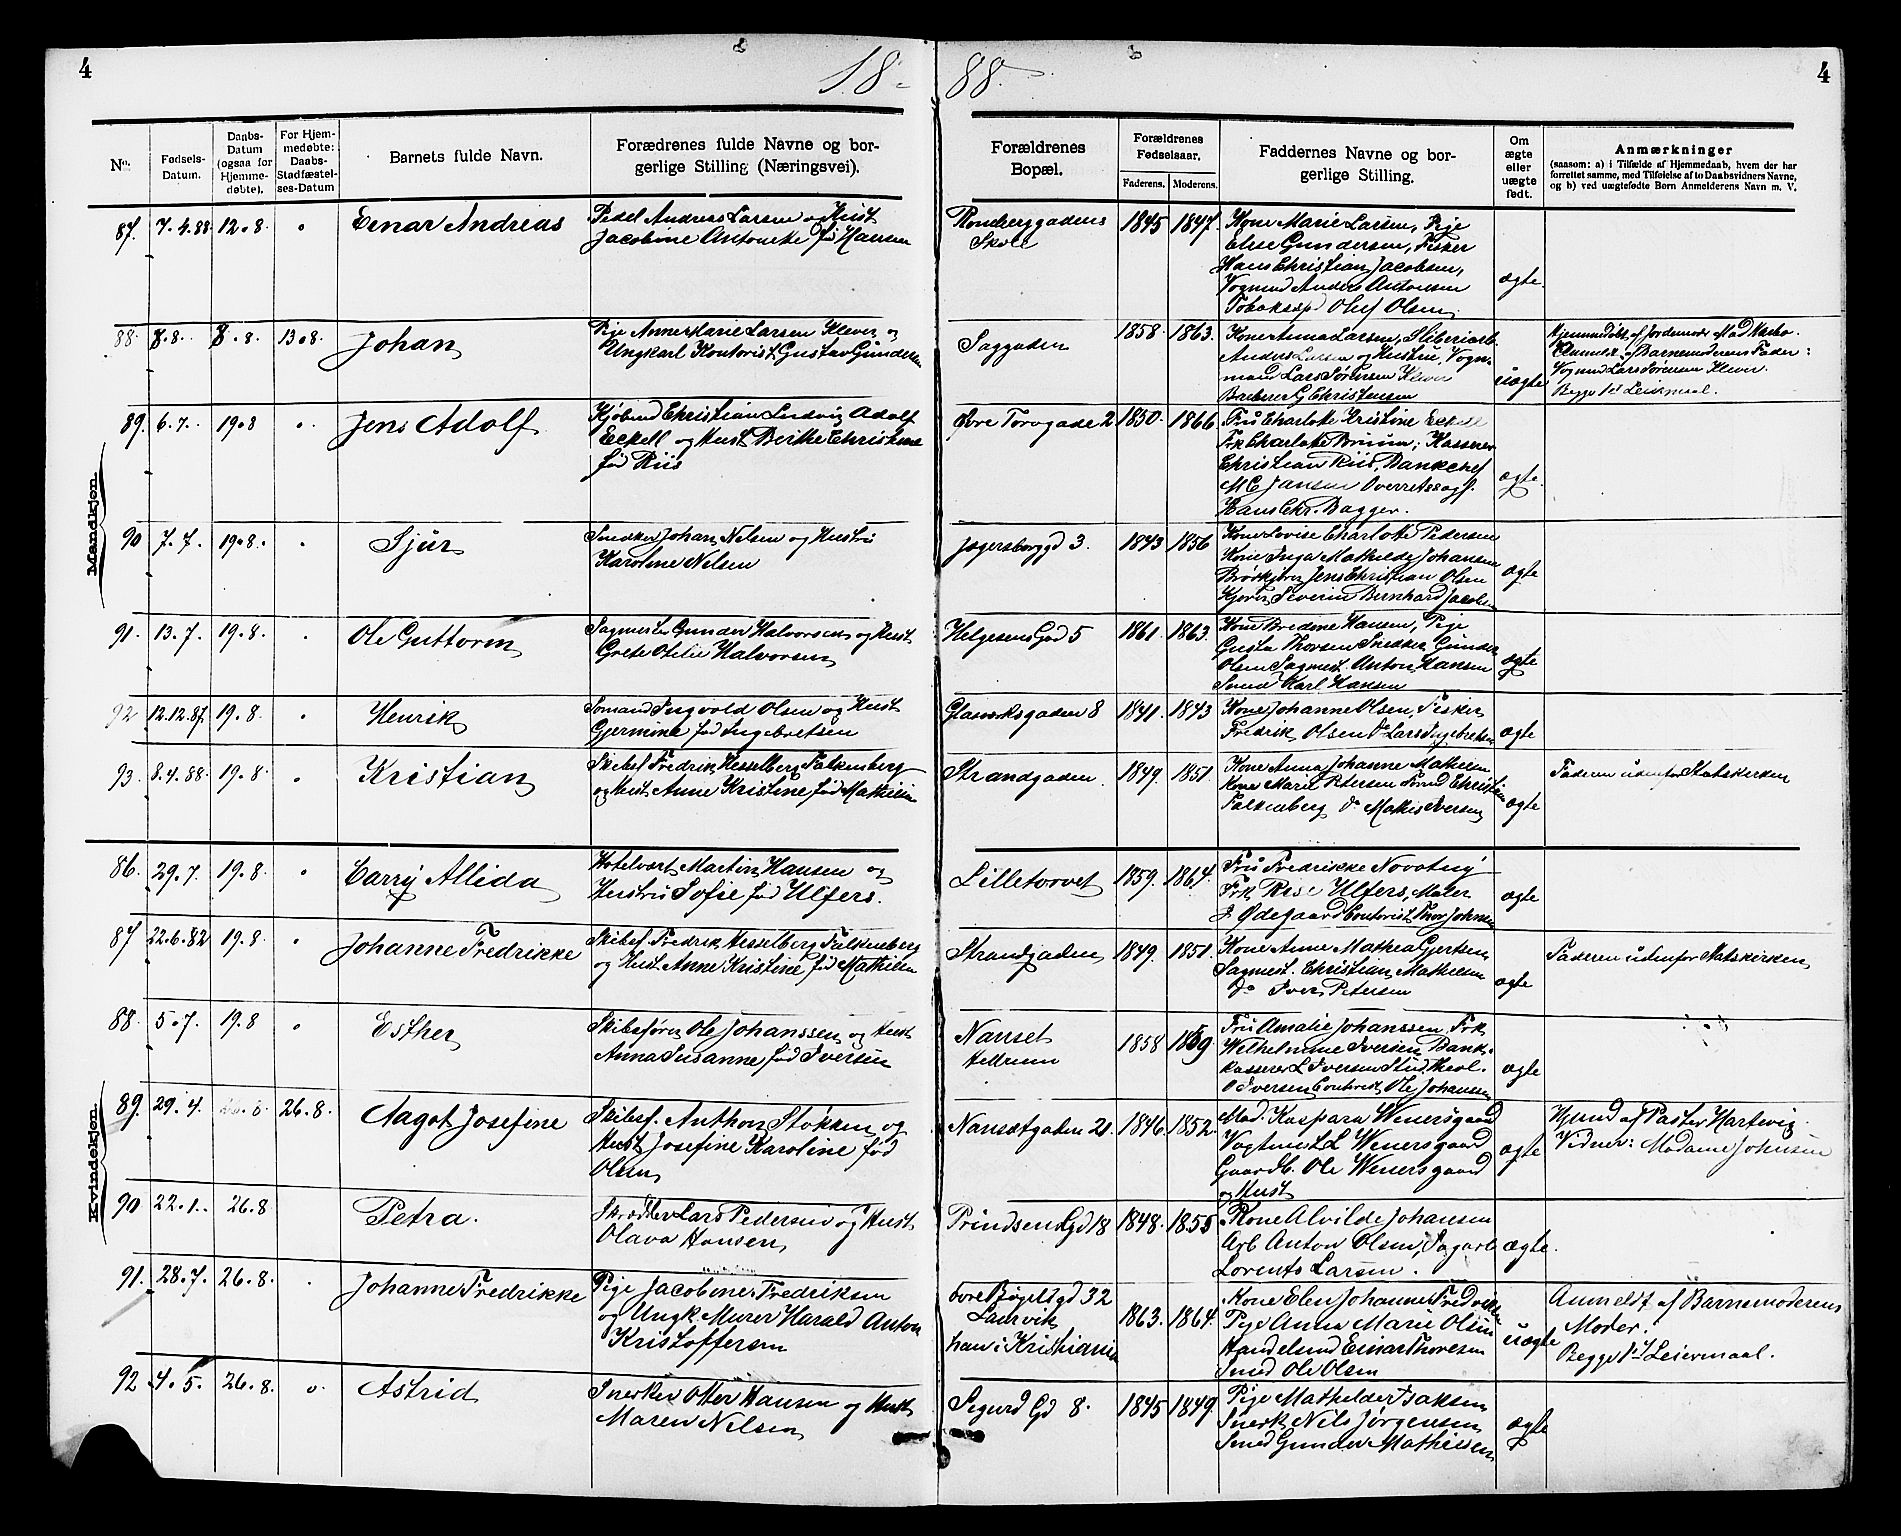 4
18
88.
4
No.
Fødsels-
Datum.
Daabs-
Datum
(ogsaa for
Hjemme-
døbte).
For Hjem-
medøbte:
Daabs-
Stadfæstel-
ses-Datum
Barnets fulde Navn.
Forædrenes fulde Navne og bor-
gerlige Stilling (Næringsvei).
Forældrenes
Bopæl.
Forældrenes
Fødselsaar.
Faderens.
Moderens.
Faddernes Navne og bor-
gerlige Stilling.
Om
ægte
eller
uægte
født.
Anmærkninger
(saasom: a) i Tilfælde af Hjemmedaab, hvem der har
forrettet samme, med Tilføielse af to Daabsvidners Navne,
og b) ved uægtefødte Børn Anmelderens Navn m. V.
Mandkjøn.
87. 7.4.88 12.8. Einar Andreas
Pedel Andreas Larsen og Hust
Jacobine Antonette fød Hansen
Skole
1845 1847.
Kone Marie Larsen, Pige
Elise Gundersen, Fisker
Hans Christian Jacobsen,
Vogmnd Anders Antonsen
Oluf Olsen
ægte.
88. 8.8. 8.8. 13.8. Johan
Pige Anne Marie Larsen Klever og
Ungkarl Kontorist Gustav Gundersen
Saggaden
1858. 1863.
Kone Anna Larsen, Sliberiarb.
Anders Larsen og Hustru, Vogn-
mand Lars Sørensen Klever
Barberer G Christensen
uægte
Hjemmedøbt af Jordemor Mad
Anmeldt af Barnemoderens Fader:
Vogmnd Lars Sørensen Klever.
Begge 1st Leiermaal.
89. 6.7. 19.8 Jens Adolf
Kjøbmd Christian Ludvig Adolf
Eckell og Hust Berthe Christine
fød Riis
Øvre Torvgade 2
1850. 1866
Fru Charlotte Kristine Eckell
Frk Charlotte Bruun, Kasserer
Christian Riis, Bankchef
M C Jansen Overretssagf.
Hans Chr. Bagger.
ægte.
90 7.7. 19.8. Sjur
Snedker Johan Nelsen og Hustru
Karoline Nelsen
Jegersborggd 3.
1843 1856
Kone Lovise Charlotte Pedersen
Kone Inga Mathilde Johansen
Jens Christian Olsen
Severin Bernhard Jacobsen
ægte
91. 13.7. 19.8. Ole Guttorm
Sagmester Gunder Halvorsen og Hust
Grete Otelie Halvorsen
Helgesens Gad 5
1861. 1863.
Kone Bredine Hansen, Pige
Gusta Thorsen Snedker Gunder
Olsen Sagmest. Anton Hansen
Smed Karl Hansen
ægte
92 12.12.87. 19.8. Henrik
Sømand Ingvold Olsen og Hust
Gjermine fød Ingebretsen
Glasverksgaden 8
1841. 1843
Kone Johanne Olsen, Fisker
Fredrik Olsen Do Lars Ingebretsen
ægte
93. 8.4.88. 19.8. Kristian
Skibsf. Fredrik Hesselberg Falkenberg
og Hust Anne Kristine fød Mathisen
Strandgaden.
1849. 1851.
Kone Anna Johanne Mathisen
Kone Marie Petersen Christian
Falkenberg Do Mathis Iversen
ægte
Faderen udenfor Statskirken
Kvindekjøn.
86. 29.7. 19.8. Carry Allida
Hotelvært Martin Hansen og
Hustru Sofie fød Ulfers.
Lilletorvet
1859. 1864.
Fru Fredrikke Novotny
Frk Rosa Ulfers, Maler
J. Ødegaard Contorist Thor Johnsen
ægte
87 22.6.82 19.8. Johanne Fredrikke
Skibsf. Fredrik Hesselberg Falkenberg
og Hust Anne Kristine fød Mathisen
Strandgaden
1849. 1851.
Kone Anne Mathea Gjertsen
Sagmest. Christian Mathisen
Do Iver Petersen
ægte
Faderen udenfor Statskirken
88. 5.7. 19.8 Esther
Skibsfører Ole Johanssen og Hust
Anna Susanne fød Iversen
Nanset
Hedrum
1858 1859
Fru Amalie Johanssen, Frk
Wilhelmine Iversen, Bank-
kasserer L Iversen Stud. theol.
O Iversen Contorist Ole Johansen
ægte
89. 29.4. 26.8. 26.8. Aagot Josefine
Skibsf. Anthon Stokken og
Hust Josefine Karoline fød
Olsen
Nansetgaden 21.
1846. 1852.
Mad. Kaspara Wenersgaard
Vogtmest L Wenersgaard
Gaardb. Ole Wenersgaard
og Hust
ægte
Hjemd af Pastor Hartvig.
Vidner: Madame Johnsen
90 22.1. 26.8 Petra.
Skrædder Lars Pedersen og Hust
Olava Hansen
Prindsens Gd 18
1848. 1855
Kone Alvilde Johansen
Arb Anton Olsen, Sagarb
Lorents Larsen.
ægte.
91. 28.7. 26.8. Johanne Fredrikke
Pige Jacobine Fredriksen
og Ungk. Murer Harald Anton
Kristoffersen
Bøgelsgd 32
Laurvik
han i Kristiania
1863. 1864.
Kone Elen Johanne Fredrikke
Pige Anna Marie Olsen
Handelsmd Einar Thoresen
Smed Ole Olsen
uægte
Anmeldt af Barnemoderens
Moder.
Begge 1st Leiermaal.
92 4.5. 26.8. Astrid
Snerker Otter Hansen og Hust
Maren Nilsen
Sigurd Gd 8.
1845 1849.
Pige Mathilde Isaksen
Snerk Nils Jørgensen
Smed Gunder Mathiesen
ægte